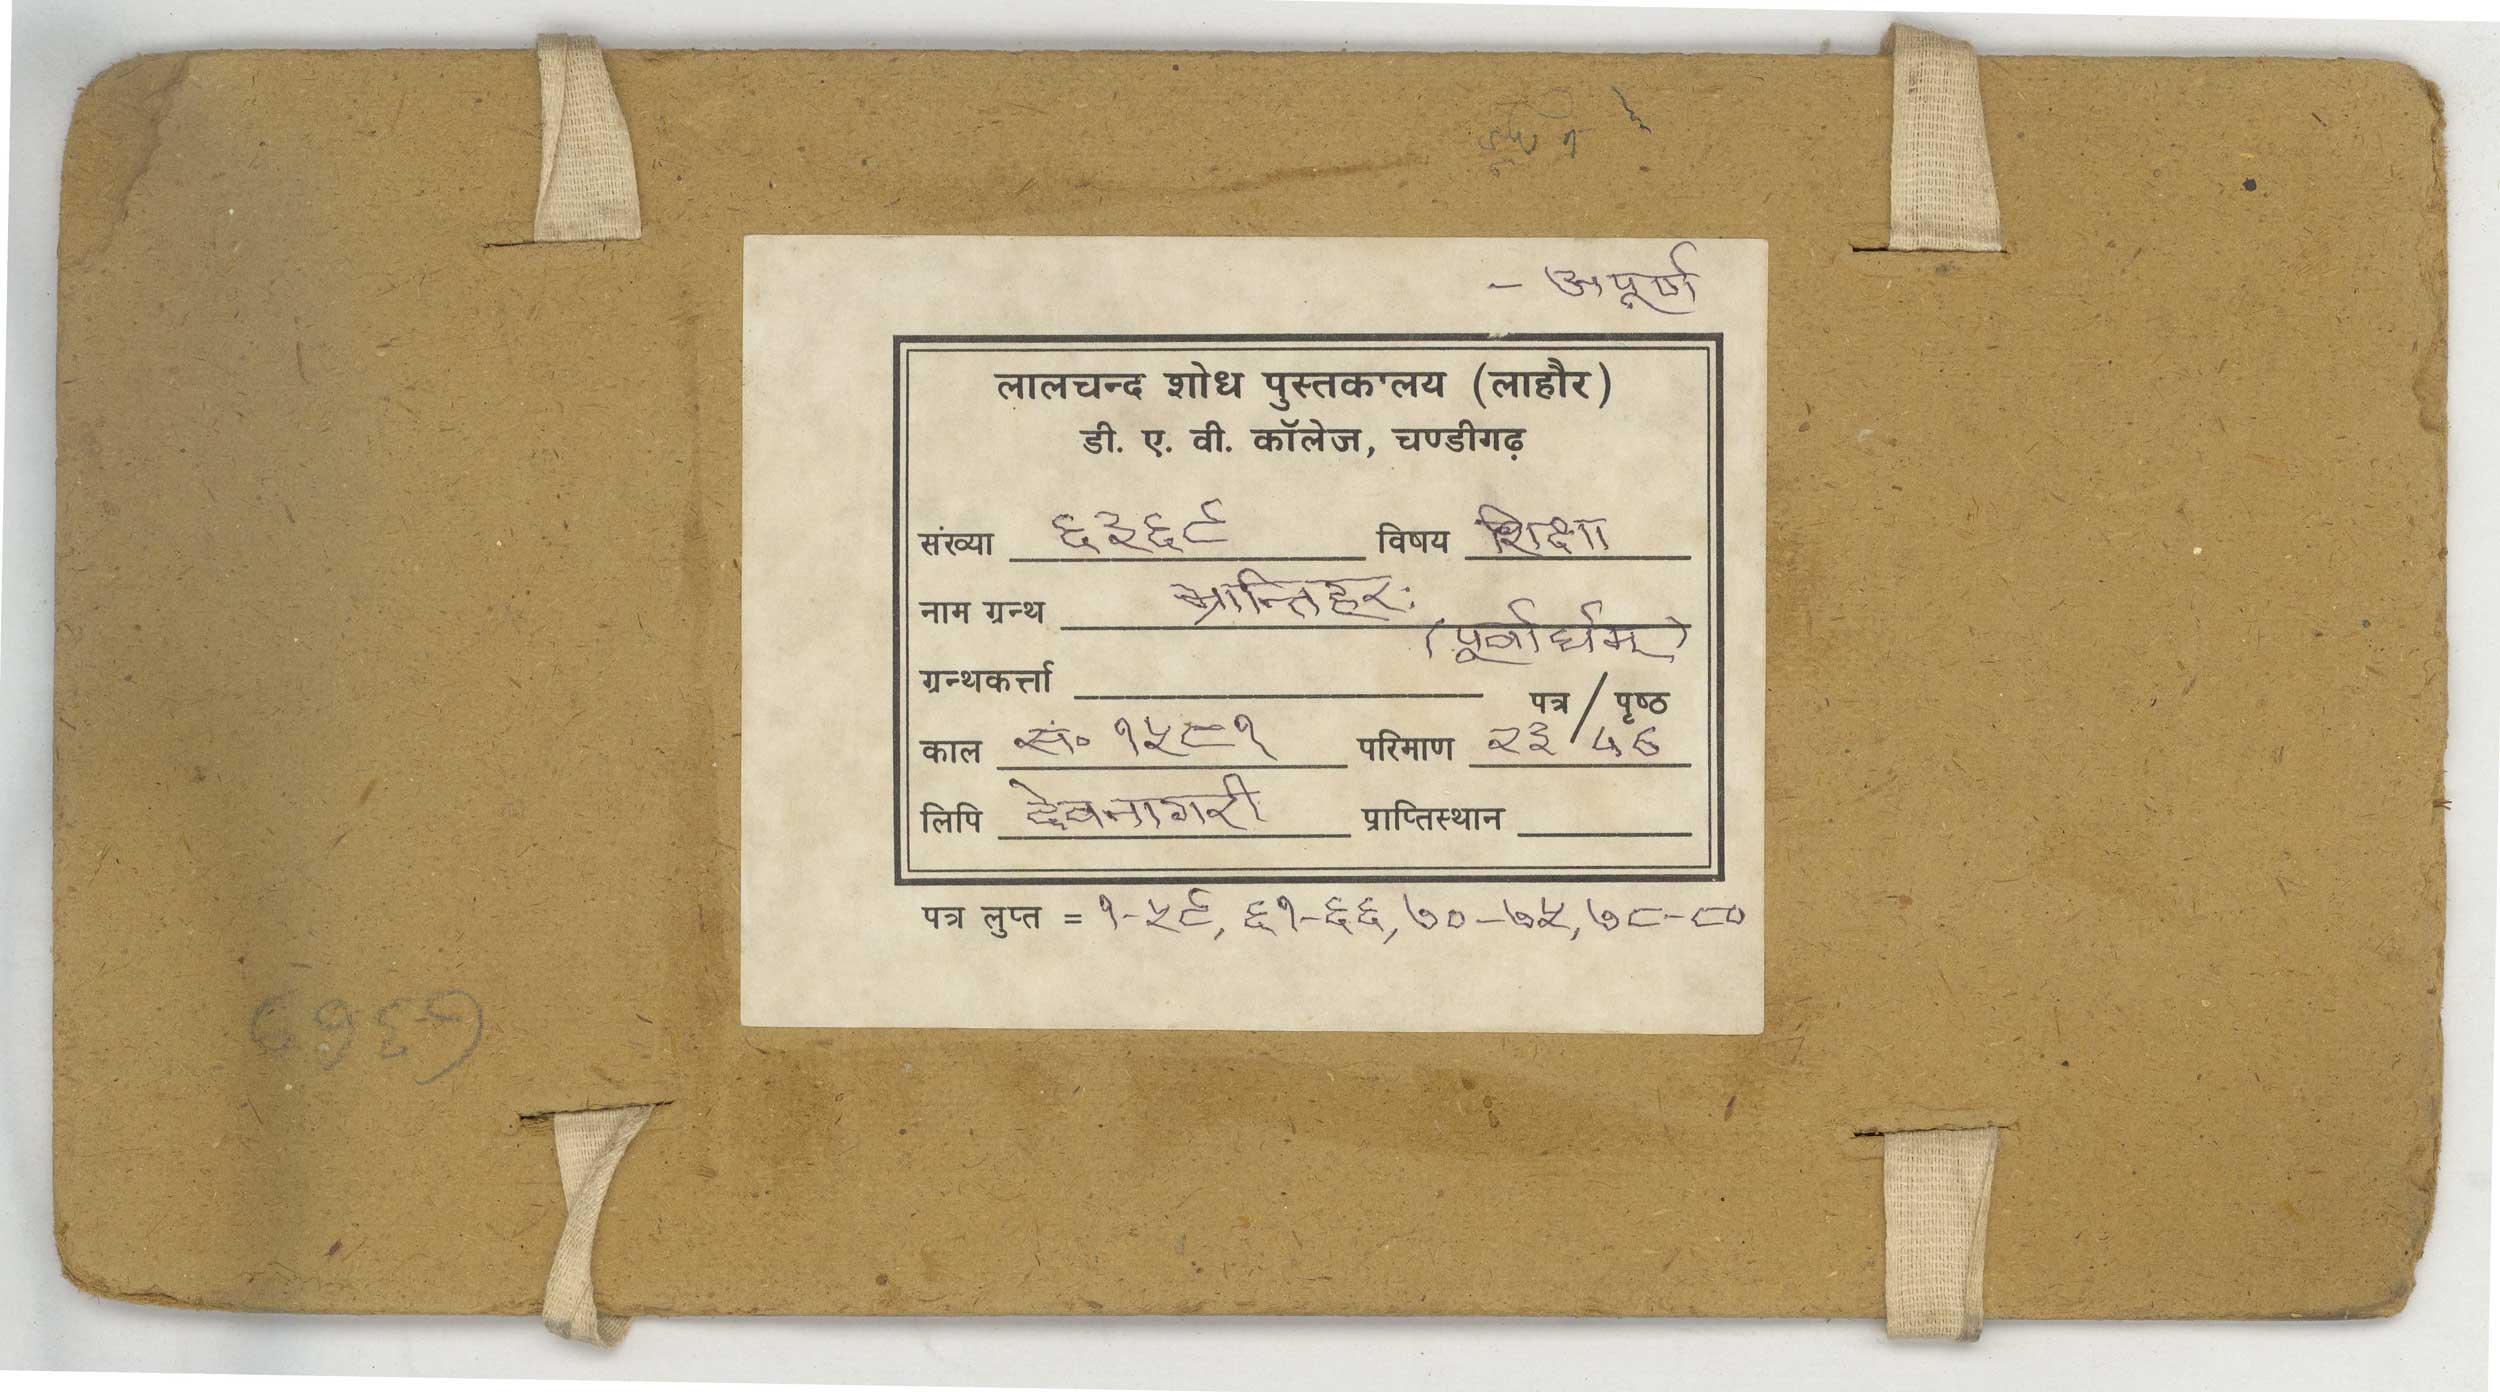 - अपूर्ण
लालचन्द शोध पुस्तक'लय (लाहौर)
डी. ए. वी. कॉलेज, चण्डीगढ़
संख्या ६३६९ विषय शिक्षा
नाम ग्रन्थ भ्रान्तिहरः
(पूर्वार्धम्)
ग्रन्थकर्त्ता
पत्र / पृष्ठ
काल सं० १५८१ परिमाण २३ / ४६
लिपि देवनागरी प्राप्तिस्थान
पत्र लुप्त = १-५९, ६१-६६, ७०-७५, ७८-८०